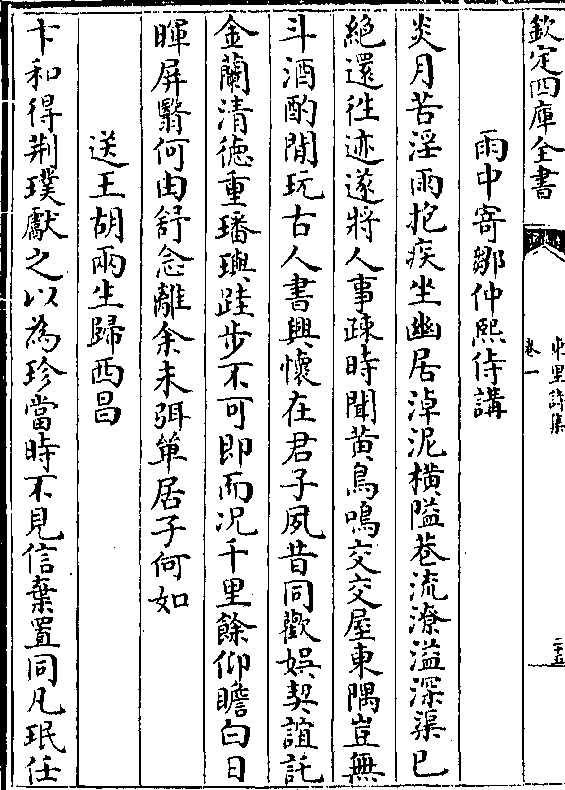 欽定四庫全書
東里詩集
卷一
二十五
雨中寄鄒仲熙侍講
炎月苦淫雨抱疾坐幽居淖泥橫隘巷流潦溢深渠已
絕還往迹遂將人事疎時聞黃鳥鳴交交屋東隅豈無
斗酒酌閒玩古人書興懷在君子夙昔同歡娛契誼託
金蘭清德重璠璵跬步不可即而况千里餘仰瞻白日
暉屏翳何由舒念離余未弭單居子何如
送王胡兩生歸西昌
卞和得荆璞獻之以為珍當時不見信棄置同凡珉任